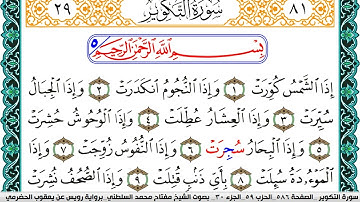 ٢٩ سُورَةُ التَّكْوِيرِ ٨١
بِسْمِ ٱللَّهِ ٱلرَّحْمَٰنِ ٱلرَّحِيمِ
إِذَا ٱلشَّمْسُ كُوِّرَتْ ١ وَإِذَا ٱلنُّجُومُ ٱنكَدَرَتْ ٢ وَإِذَا ٱلْجِبَالُ
سُيِّرَتْ ٣ وَإِذَا ٱلْعِشَارُ عُطِّلَتْ ٤ وَإِذَا ٱلْوُحُوشُ حُشِرَتْ
٥ وَإِذَا ٱلْبِحَارُ سُجِرَتْ ٦ وَإِذَا ٱلنُّفُوسُ زُوِّجَتْ ٧ وَإِذَا
ٱلْمَوْءُۥدَةُ سُئِلَتْ ٨ بِأَيِّ ذَنۢبٍ قُتِلَتْ ٩ وَإِذَا ٱلصُّحُفُ نُشِرَتْ
سورة التكوير . الصفحة ٥٨٦ . الحزب ٥٩ . الجزء ٣٠ . بصوت الشيخ مفتاح محمد السلطني . برواية رويس عن يعقوب الحضرمي